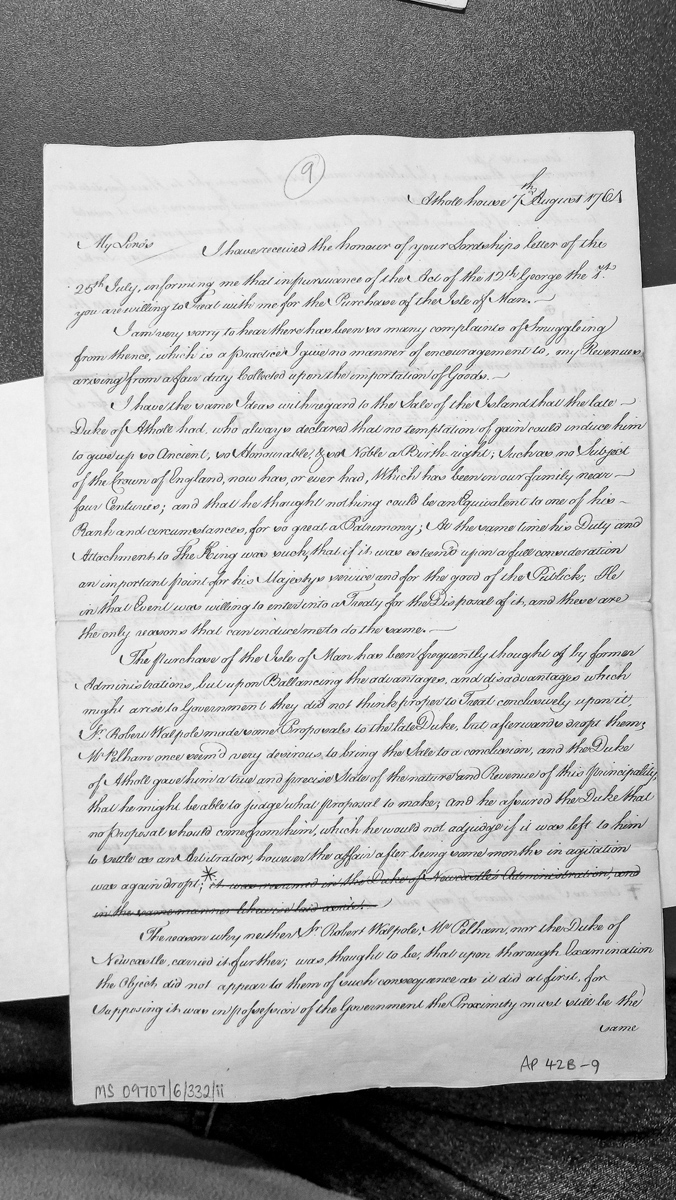 9
Atholl house 7th August 1764
My Lords I have received the honour of your Lordships letter of the
25th July, informing me that in pursuance of the Act of the 12th George the 1st.
you are willing to Treat with me for the Purchase of the Isle of Man. —
I am very sorry to hear there has been so many complaints of Smuggleing
from thence, which is a practice I give no manner of encouragement to, my Revenues
arising from a fair duty Collected upon the importation of Goods. —
I have the same Ideas with regard to the Sale of the Island that the late —
Duke of Atholl had, who always declared that no temptation of gain could induce him
to give up so Ancient, so Honourable, & so Noble a Birth right; Such as no Subject
of the Crown of England, now has, or ever had, Which has been in our family near —
four Centuries; and that he thought nothing could be an Equivalent to one of his —
Rank and circumstances, for so great a Patrimony; At the same time his Duty and
Attachment to The King was such, that if it was esteem'd upon a full consideration
an important point for his Majestys service and for the good of the Publick, He
in that Event was willing to enter into a Treaty for the Disposal of it, and these are
the only reasons that can induce me to do the same. —
The purchase of the Isle of Man has been frequently thought of by former
Administrations, but upon Ballancing the advantages, and disadvantages which
might arise to Government they did not think proper to Treat conclusively upon it,
Sr. Robert Walpole made some Proposals to the late Duke, but afterwards dropt them;
Mr Pelham once seem'd very desirous, to bring the Sale to a conclusion, and the Duke
of Atholl gave him a true and precise State of the nature and Revenue of this principality,
that he might be able to judge what proposal to make; and he assured the Duke that
no proposal should come from him, which he would not adjudge if it was left to him
to settle as an Arbitrator, however the affair after being some months in agitation
was again dropt; * it was resumed in the Duke of Newcastle's Administration, and
in the same manner likewise laid aside. —
The reason why neither Sr. Robert Walpole, Mr. Pelham, nor the Duke of
Newcastle, carried it further, was, thought to be, that upon thorough Examination
the Object did not appear to them of such consequence as it did at first, for
supposing it was in possession of the Government the Proximity must still be the
same
AP 42B-9
MS 09707/6/332/ii